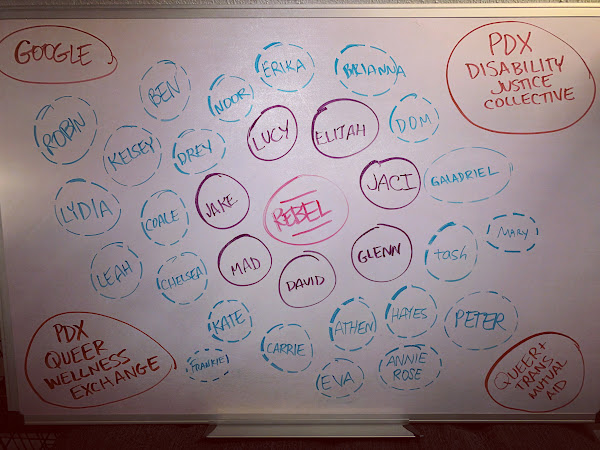 GOOGLE
PDX
DISABILITY
JUSTICE
COLLECTIVE
ERIKA
BRIANNA
BEN
NOOR
ROBIN
KELSEY
DREY
LUCY
ELIJAH
DOM
LYDIA
COALE
JAKE
REBEL
JACI
GALADRIEL
LEAH
CHELSEA
MAD
DAVID
GLENN
tash
MARY
KATE
CARRIE
ATHEN
HAYES
PETER
FRANKIE
EVA
ANNIE
ROSE
PDX
QUEER
WELLNESS
EXCHANGE
QUEER+
TRANS
MUTUAL
AID